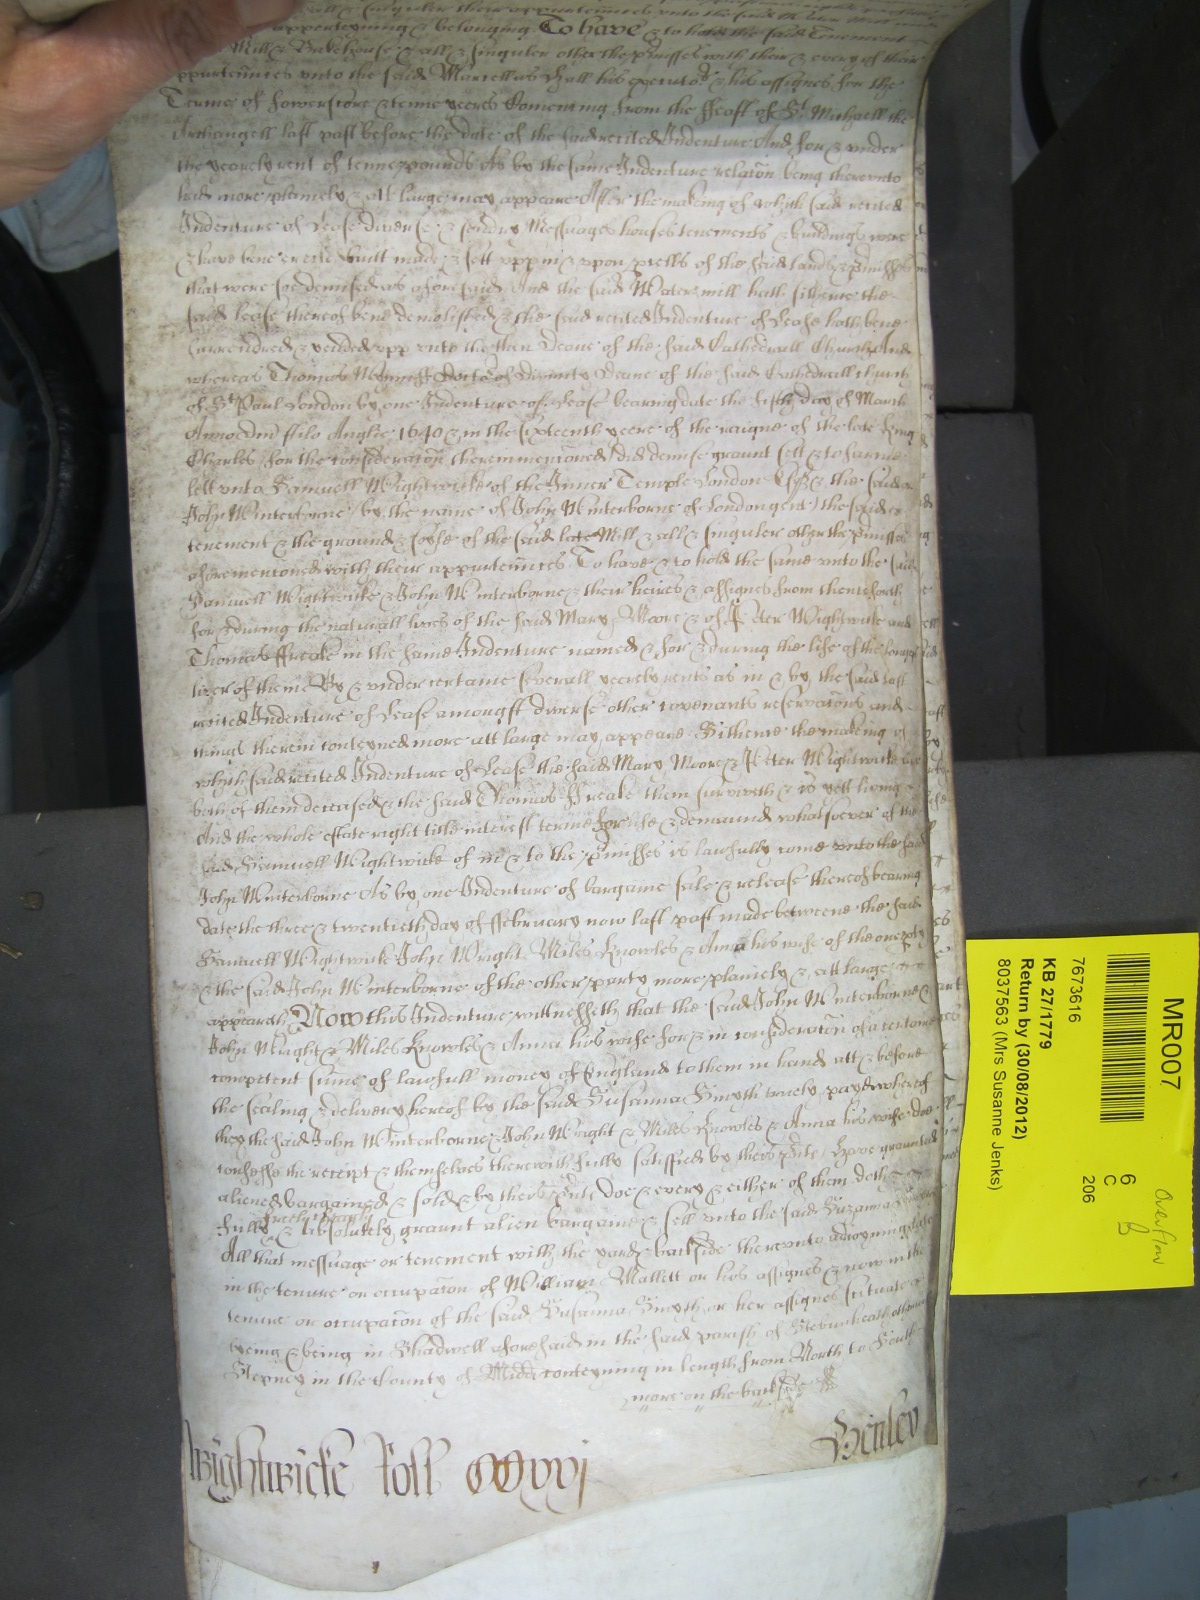 appurteyning & belonging To have & to hold the said Tenement
Mill & Bakehouse & all & singuler other the p̄misses with their & every of their
appurteñnces unto the said Marcellus Hall his executors & his assignes for the
Terme of fowerscore & tenne yeeres Comencing from the ffeast of St Michaell the
Archangell last past before the date of the said recited Indenture And for & under
the yeerely rent of tenne pounds As by the same Indenture relac̄on being thereunto
had more plainely & att large may appeare After the makeing of which said recited
Indenture of Lease diverse & sundry Messuages houses tenements & buildings were
& have bene built made & sett upp in & upon p̄cells of the said land & p̄misses
that were soe demised as aforesaid And the said Water mill hath sithence the
said lease thereof bene demolished & the said recited Indenture of Lease hath bene
surrendred & yeilded upp unto the then Deane of the said Cathedrall Church And
whereas Thomas Doctor of Divinity Deane of the said Cathedrall Church
of St Paul London by one Indenture of Lease bearing date the fifth day of March
Anno Dñi stilo Anglie 1640 & in the sixteenth yeere of the raigne of the late King
Charles for the considerac̄on therein menc̄oned did demise graunt sett & to farme
lett unto Samuell Wightwicke of the Inner Temple London Esqr & the said
John Winterborne by the name of John Winterborne of London gent the said
tenement & the ground & soyle of the said late Mill & all & singuler other the p̄misses
aforemenc̄oned with their appurteñnces To have & to hold the same unto the said
Samuell Wightwicke & John Winterborne & their heires & assignes from thenceforth
for & during the naturall lives of the said Mary Moore & of Peter Wightwicke and
Thomas ffreake in the same Indenture named & for & during the life of the longest
liver of them By & under certaine severall yeerely rents as in & by the said last
recited Indenture of Lease amongst diverse other covenants reservac̄ons and
things therein conteyned more att large may appeare Sithence the makeing of
which said recited Indenture of Lease the said Mary Moore & Peter Wightwicke are
both of them deceased & the said Thomas ffreake them surviveth & is yett living
And the whole estate right title interest terme for life & demaund whatsoever of the
said Samuell Wightwicke of in & to the p̄misses is lawfully come unto the said
John Winterborne As by one Indenture of bargaine sale & release thereof bearing
date the three & twentieth day of ffebruary now last past made betweene the said
Samuell Wightwicke John Wright Miles Knowles & Anna his wife of the one party
& the said John Winterborne of the other party more plainely & att large
appeareth Now this Indenture witnesseth that the said John Winterborne
John Wright & Miles Knowles & Anna his wife for & in considerac̄on of a certaine
competent sume of lawfull money of England to them in hand att & before
the sealing & delivery hereof by the said Susanna Smyth truely payd whereof
they the said John Winterborne John Wright & Miles Knowles & Anna his wife doe
confesse the receipt & themselves therewith fully satisfied by theis p̄nts Have graunted
aliened bargained & sold & by theis p̄nts doe & every & either of them doth
freely cleerely
fully & absolutely graunt alien bargaine & sell unto the said Suzanna
All that messuage or tenement with the yard & backside thereunto adioyning late
in the tenure or occupac̄on of William Mallett or his assignes & now in the
tenure or occupac̄on of the said Susanna Smyth or her assignes scituate
lyeing & being in Shadwell aforesaid in the said parish of Stebunheath otherwise
Stepney in the County of Midd conteyning in length from North to South
more on the backside
Wightwicke Roll CCxxvj
Henley
MR007
7673616
KB 27/1779
Return by (30/08/2012)
8037563 (Mrs Susanne Jenks)
6
C
206
Overflow
B